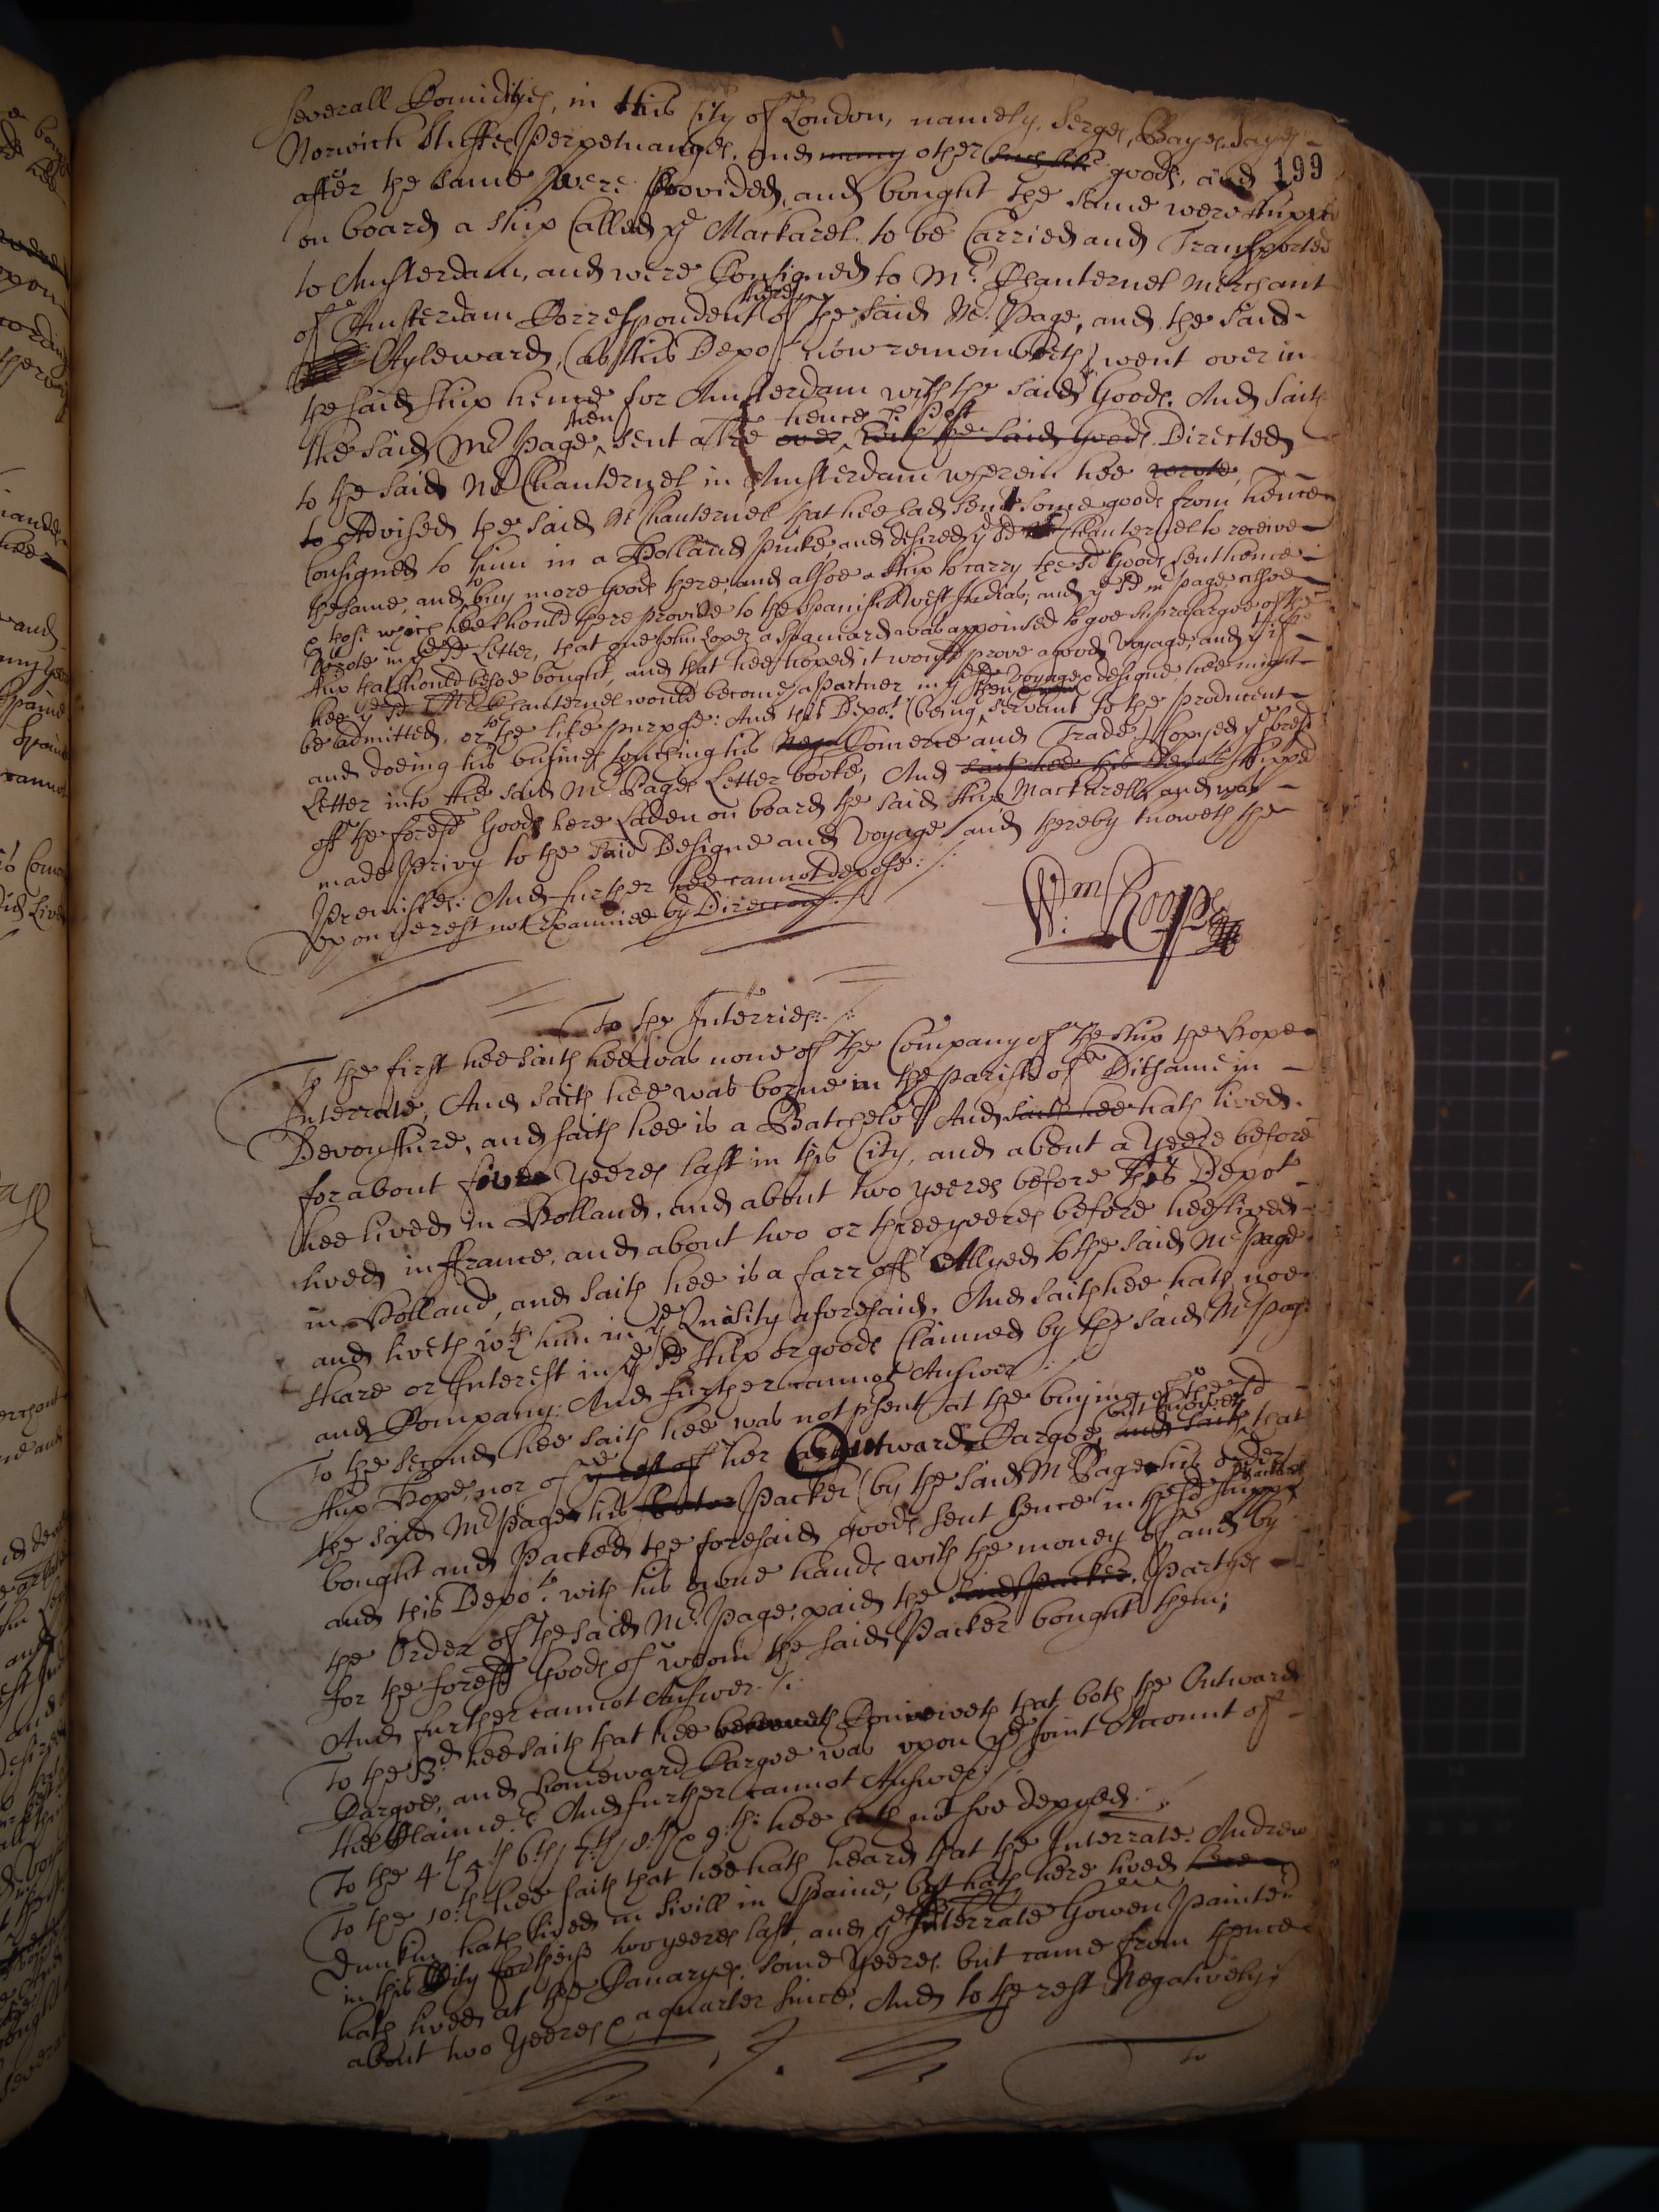 severall Comidityes, in this City of London, namely. Serges, Bayes, Sayes
Norwich Stuffes, Perpetuanaes, and many other such like goods, and
199
after the same were Provided, and bought the same were shipped
on board a ship Called ye Mackarel to be Carried and Transported
to Amsterdam, and were Consigned to Mr. Chanternel Merchant
of Amsterdam Correspondent there of the said Mr. Page, and the said
Ayleward, (as this Depot now remembreth) went over in
the said ship hence for Amsterdam with the said Goods. And saith
the said Mr Page then sent a tre over hence P. Post with the said Goods Directed
to the said Mr Chanternel in Amsterdam wherein hee wrote
to Advised the said Mr Chanternel that hee had sent some goods from hence
Consigned to him in a Holland Pinke, and desired ye sd Chanternel to receive
the same, and to buy more Goods there, and alsoe a ship to carry the sd Goods sent hence
& those which hee should there provide to the Spanish West Indias; and ye sd mr page alsoe
Wrote in ye sd Letter, that one John Lopez a Spaniard was appointed to goe supracargoe of the
ship that should bee soe bought, and that hee hoped it would prove a good Voyage, and yt if
hee ye sd Mr Chanternel would become a Partner in ye sd Voyage & designe, hee might
be admitted, or to the like purpose: And this Depot. (being then servant to the Producent
and doeing his business touching his Comerce and Trade) Copyed ye foresd
Letter into the said Mr Pages Letter booke, And saith hee this Depot shipped
off the foresd Goods here Laden on board the said ship Mackarell, and was
made Privy to the said Designe and Voyage, and thereby knoweth the
Premisses: And further hee cannot depose:/:
Upon ye rest not Examined by Direccon:/
Wm Roope
To the Interries:/:
To the first hee saith hee was none of the Company of the ship the Hope
Interrate, And saith hee was borne in the parish of Dithame in
Devonshire, and saith hee is a Batchelor And saith hee hath lived
for about five yeeres last in this City, and about a yeere before
hee lived in Holland, and about two yeeres before this Depot
lived in ffrance, and about two or three yeeres before hee lived
in Holland, and saith hee is a farr off Allyed to the said Mr Page
and liveth wth him in ye Quality aforesaid. And saith hee hath noe
share or Interest in ye sd ship or goods Claimed by the said Mr Page
and Company: And further cannot Answer:
To the second hee saith hee was not present at the buying of the sd
ship Hope, nor of ye rest of her Outwards Cargoe, and saith but knoweth that
the said Mr Page his Packer (by the said Mr Page his order)
bought and Packed the foresaid goods sent hence in the sd shipp
and this Depot. with his owne hands with the money of and by
the Order of the said Mr. Page, paid the said Packer, Partyes
for the foresd Goods of whom the said Packer bought them;
And further cannot Answer:/:
To the 3d hee saith that hee beleeveth Conceiveth that both the Outward
Cargoe, and homeward Cargoe was upon ye Joint Account of
the Claimers And further cannot Answer:/
To the 4th 5th 6th 7th 8th & 9th: hee hath not soe deposed:/:
To the 10th hee saith that hee hath heard that the Interrate. Andrew
Dunkin hath lived in Sivill in Spaine, but hath here lived here
in this City for these two yeeres last, and ye Interrate Gowen Painter
hath lived at the Canaryes. some yeeres. but came from thence
about two yeeres & a quarter since. And to the rest Negatively:
to